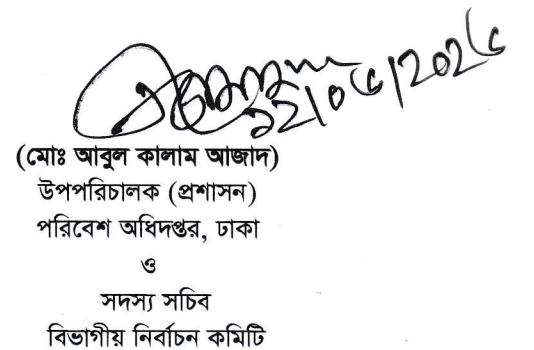 (মোঃ আবুল কালাম আজাদ)
উপপরিচালক (প্রশাসন)
পরিবেশ অধিদপ্তর, ঢাকা
ও
সদস্য সচিব
বিভাগীয় নির্বাচন কমিটি